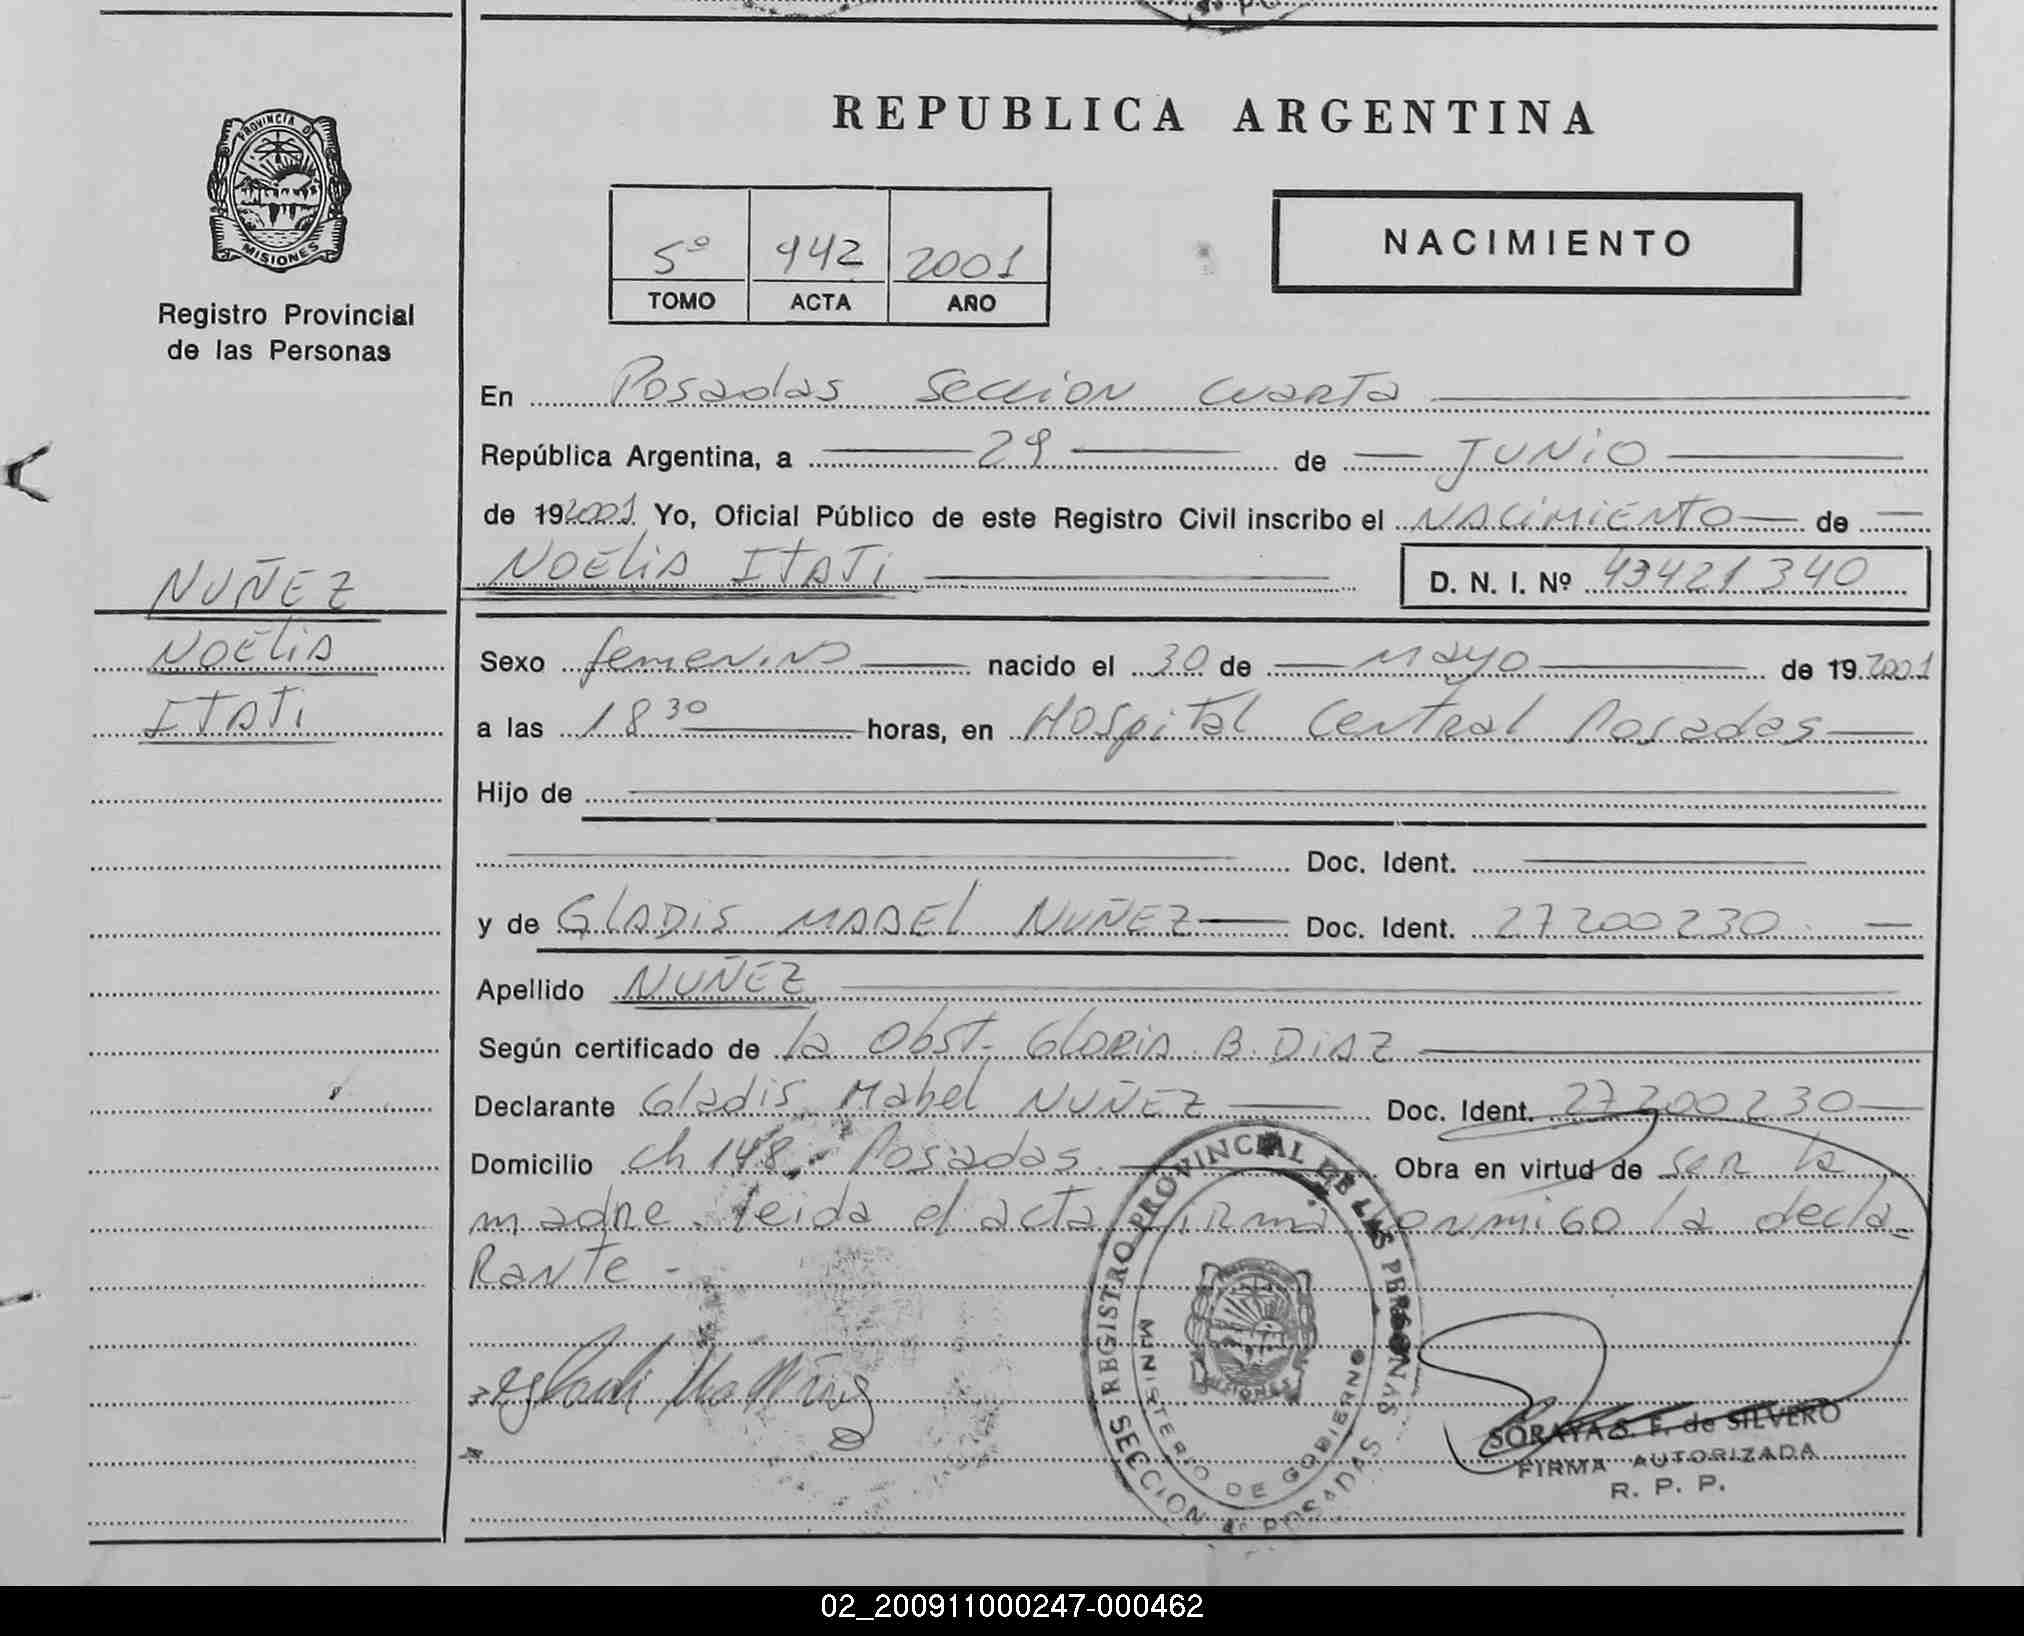 REPUBLICA ARGENTINA
PROVINCIA D
MISIONES
Registro Provincial
de las Personas
5º 942 2001
TOMO ACTA AÑO
NACIMIENTO
En Posadas Seccion Cuarta
República Argentina, a 29 de JUNIO
de 19 2001 Yo, Oficial Público de este Registro Civil inscribo el NACIMIENTO de
NOELIA ITATI D. N. I. Nº 43421340
NUÑEZ
NOELIA
ITATI
Sexo femenino nacido el 30 de Mayo de 19 2001
a las 18 30 horas, en Hospital Central Posadas
Hijo de
Doc. Ident.
y de GLADIS MABEL NUÑEZ Doc. Ident. 27200230
Apellido NUÑEZ
Según certificado de la Obst. GLORIA B. DIAZ
Declarante Gladis Mabel NUÑEZ Doc. Ident. 27200230
Domicilio Ch 148. Posadas. Obra en virtud de ser la
madre. leida el acta firma conmigo la decla-
Rante -
REGISTRO PROVINCIAL DE LAS PERSONAS
MINISTERIO DE GOBIERNO
MISIONES
SECCION 4a POSADAS
SORAYA S. F. de SILVERO
FIRMA AUTORIZADA
R. P. P.
02_200911000247-000462